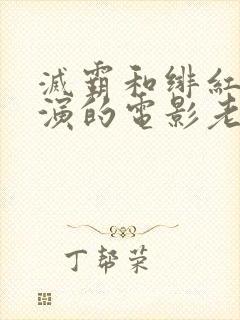 滅霸和緋紅
演的電影老
丁幇荣